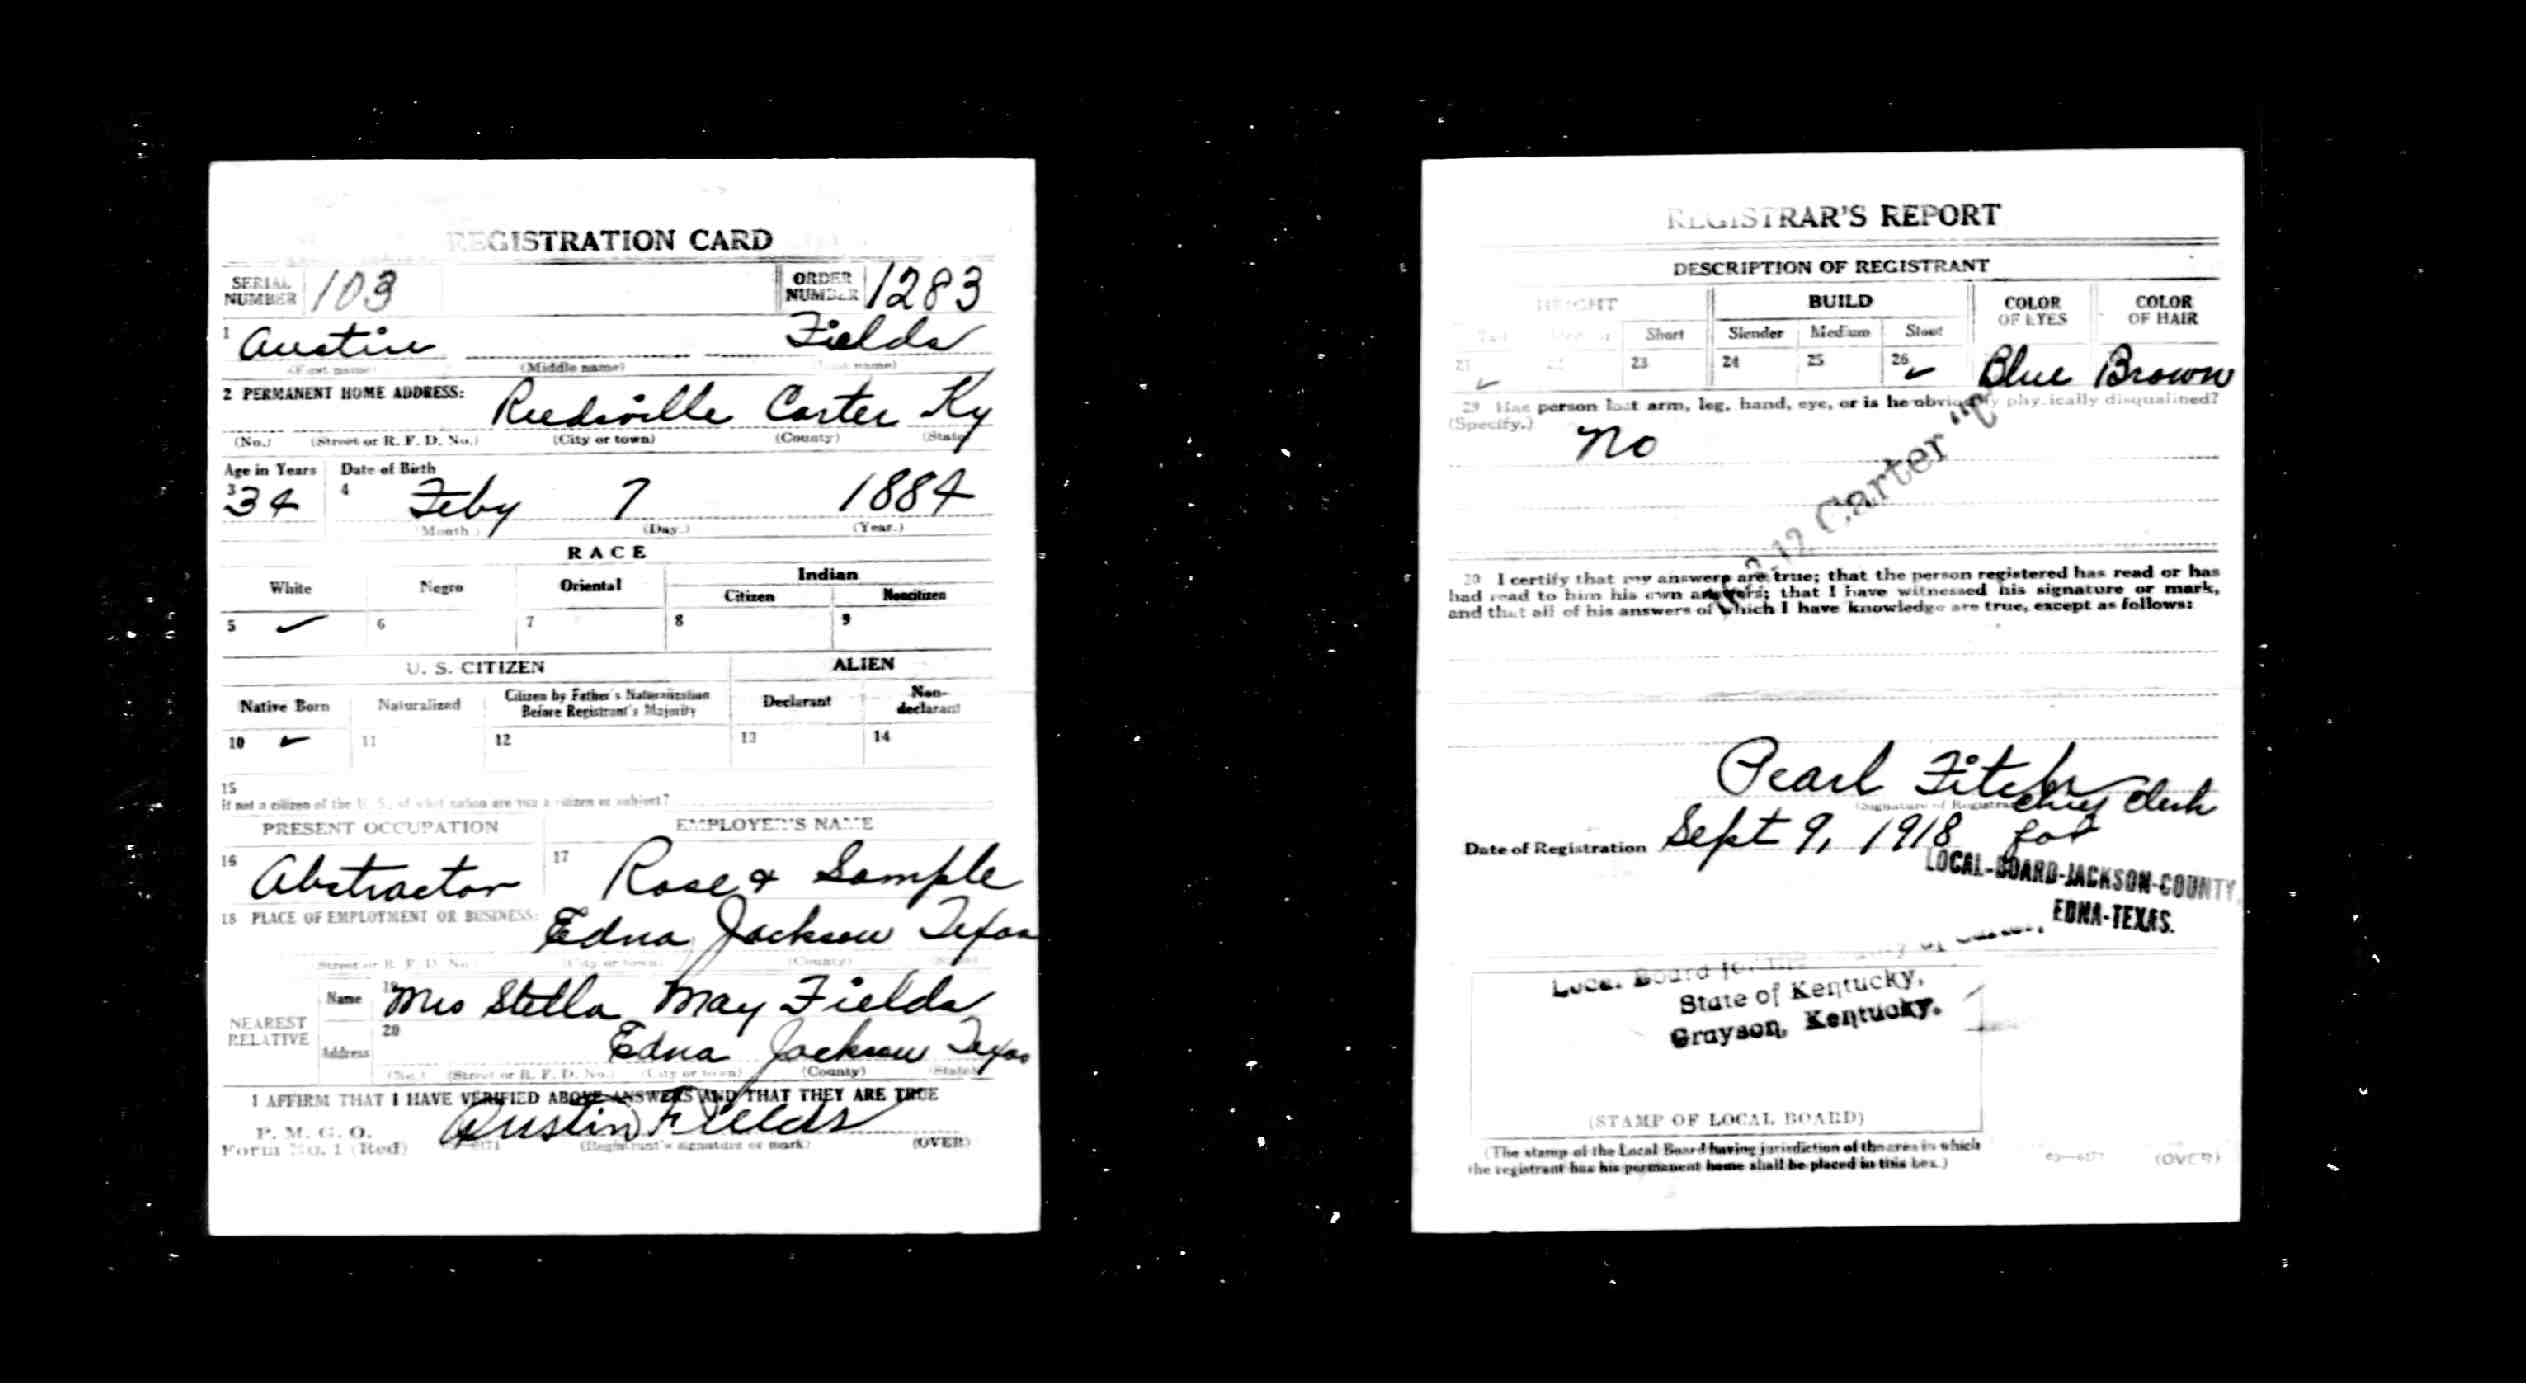 REGISTRATION CARD
SERIAL NUMBER 103 ORDER NUMBER 1283
1 Austin Fields
(First name) (Middle name) (Last name)
2 PERMANENT HOME ADDRESS:
Reedville Carter Ky
(No.) (Street or R. F. D. No.) (City or town) (County) (State)
Age in Years Date of Birth
3 34 4 Feby 7 1884
(Month.) (Day.) (Year.)
RACE
White Negro Oriental Indian
Citizen Noncitizen
5 ✓ 6 7 8 9
U. S. CITIZEN ALIEN
Native Born Naturalized Citizen by Father's Naturalization Before Registrant's Majority Declarant Non-declarant
10 ✓ 11 12 13 14
15
If not a citizen of the U. S., of what nation are you a citizen or subject?
PRESENT OCCUPATION EMPLOYER'S NAME
16 Abstractor 17 Rose & Sample
18 PLACE OF EMPLOYMENT OR BUSINESS:
Edna Jackson Texas
(Street or R. F. D. No.) (City or town) (County) (State)
NEAREST RELATIVE Name 19 Mrs Stella May Fields
Address 20 Edna Jackson Texas
(No.) (Street or R. F. D. No.) (City or town) (County) (State)
I AFFIRM THAT I HAVE VERIFIED ABOVE ANSWERS AND THAT THEY ARE TRUE
P. M. G. O.
Form No. 1 (Red) Austin Fields
(Registrant's signature or mark) (OVER)
REGISTRAR'S REPORT
DESCRIPTION OF REGISTRANT
HEIGHT BUILD COLOR OF EYES COLOR OF HAIR
Tall Medium Short Slender Medium Stout
21 ✓ 22 23 24 25 26 ✓ Blue Brown
29 Has person lost arm, leg, hand, eye, or is he obviously physically disqualified?
(Specify.) No
12 Carter "C
30 I certify that my answers are true; that the person registered has read or has
had read to him his own answers; that I have witnessed his signature or mark,
and that all of his answers of which I have knowledge are true, except as follows:
Pearl Fitch
(Signature of Registrar)
chief clerk
Date of Registration Sept 9, 1918 for
LOCAL-BOARD-JACKSON-COUNTY,
EDNA-TEXAS.
Local Board for the County of Carter,
State of Kentucky,
Grayson, Kentucky.
(STAMP OF LOCAL BOARD)
(The stamp of the Local Board having jurisdiction of the area in which
the registrant has his permanent home shall be placed in this box.)
(OVER)